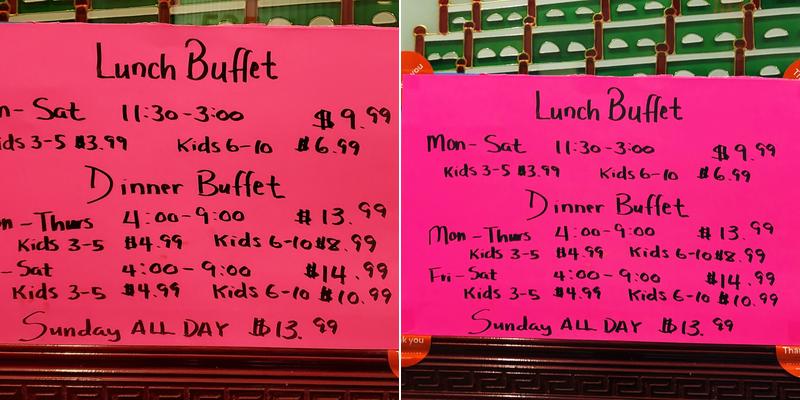 Lunch Buffet
n- Sat 11:30-3:00 $9.99
ids 3-5 $3.99 Kids 6-10 $6.99
Dinner Buffet
n-Thurs 4:00-9:00 $13.99
Kids 3-5 $4.99 Kids 6-10 $8.99
-Sat 4:00-9:00 $14.99
Kids 3-5 $4.99 Kids 6-10 $10.99
Sunday ALL DAY $13.99
you
Lunch Buffet
Mon-Sat 11:30-3:00 $9.99
Kids 3-5 $3.99 Kids 6-10 $6.99
Dinner Buffet
Mon-Thurs 4:00-9:00 $13.99
Kids 3-5 $4.99 Kids 6-10 $8.99
Fri-Sat 4:00-9:00 $14.99
Kids 3-5 $4.99 Kids 6-10 $10.99
Sunday ALL DAY $13.99
k you
Than